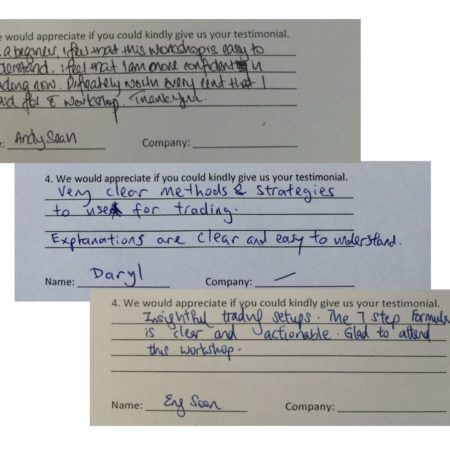 e would appreciate if you could kindly give us your testimonial.
a beginner, i feel that this workshop is easy to
derstand. i feel that I am more confident in
ading now. Definately worth every cent that I
aid for & workshop Thank you.
e: Andy Sean Company:
4. We would appreciate if you could kindly give us your testimonial.
Very clear methods & strategies
to use for trading.
Explanations are clear and easy to understand.
Name: Daryl Company: —
4. We would appreciate if you could kindly give us your testimonial.
Insightful trading setups. The 7 step Formula
is clear and actionable. Glad to attend
this workshop.
Name: Eng Soon Company: